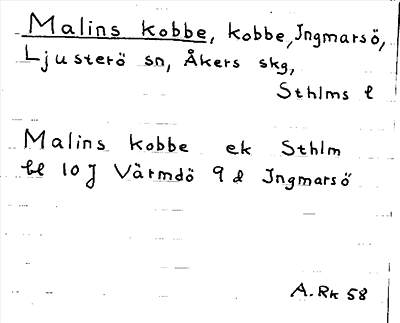 Malins kobbe, kobbe, Ingmarsö,
Ljusterö sn, Åkers skg,
Sthlms l
Malins kobbe ek Sthlm
bl 10 J Värmdö 9 d Ingmarsö
A. Rk 58